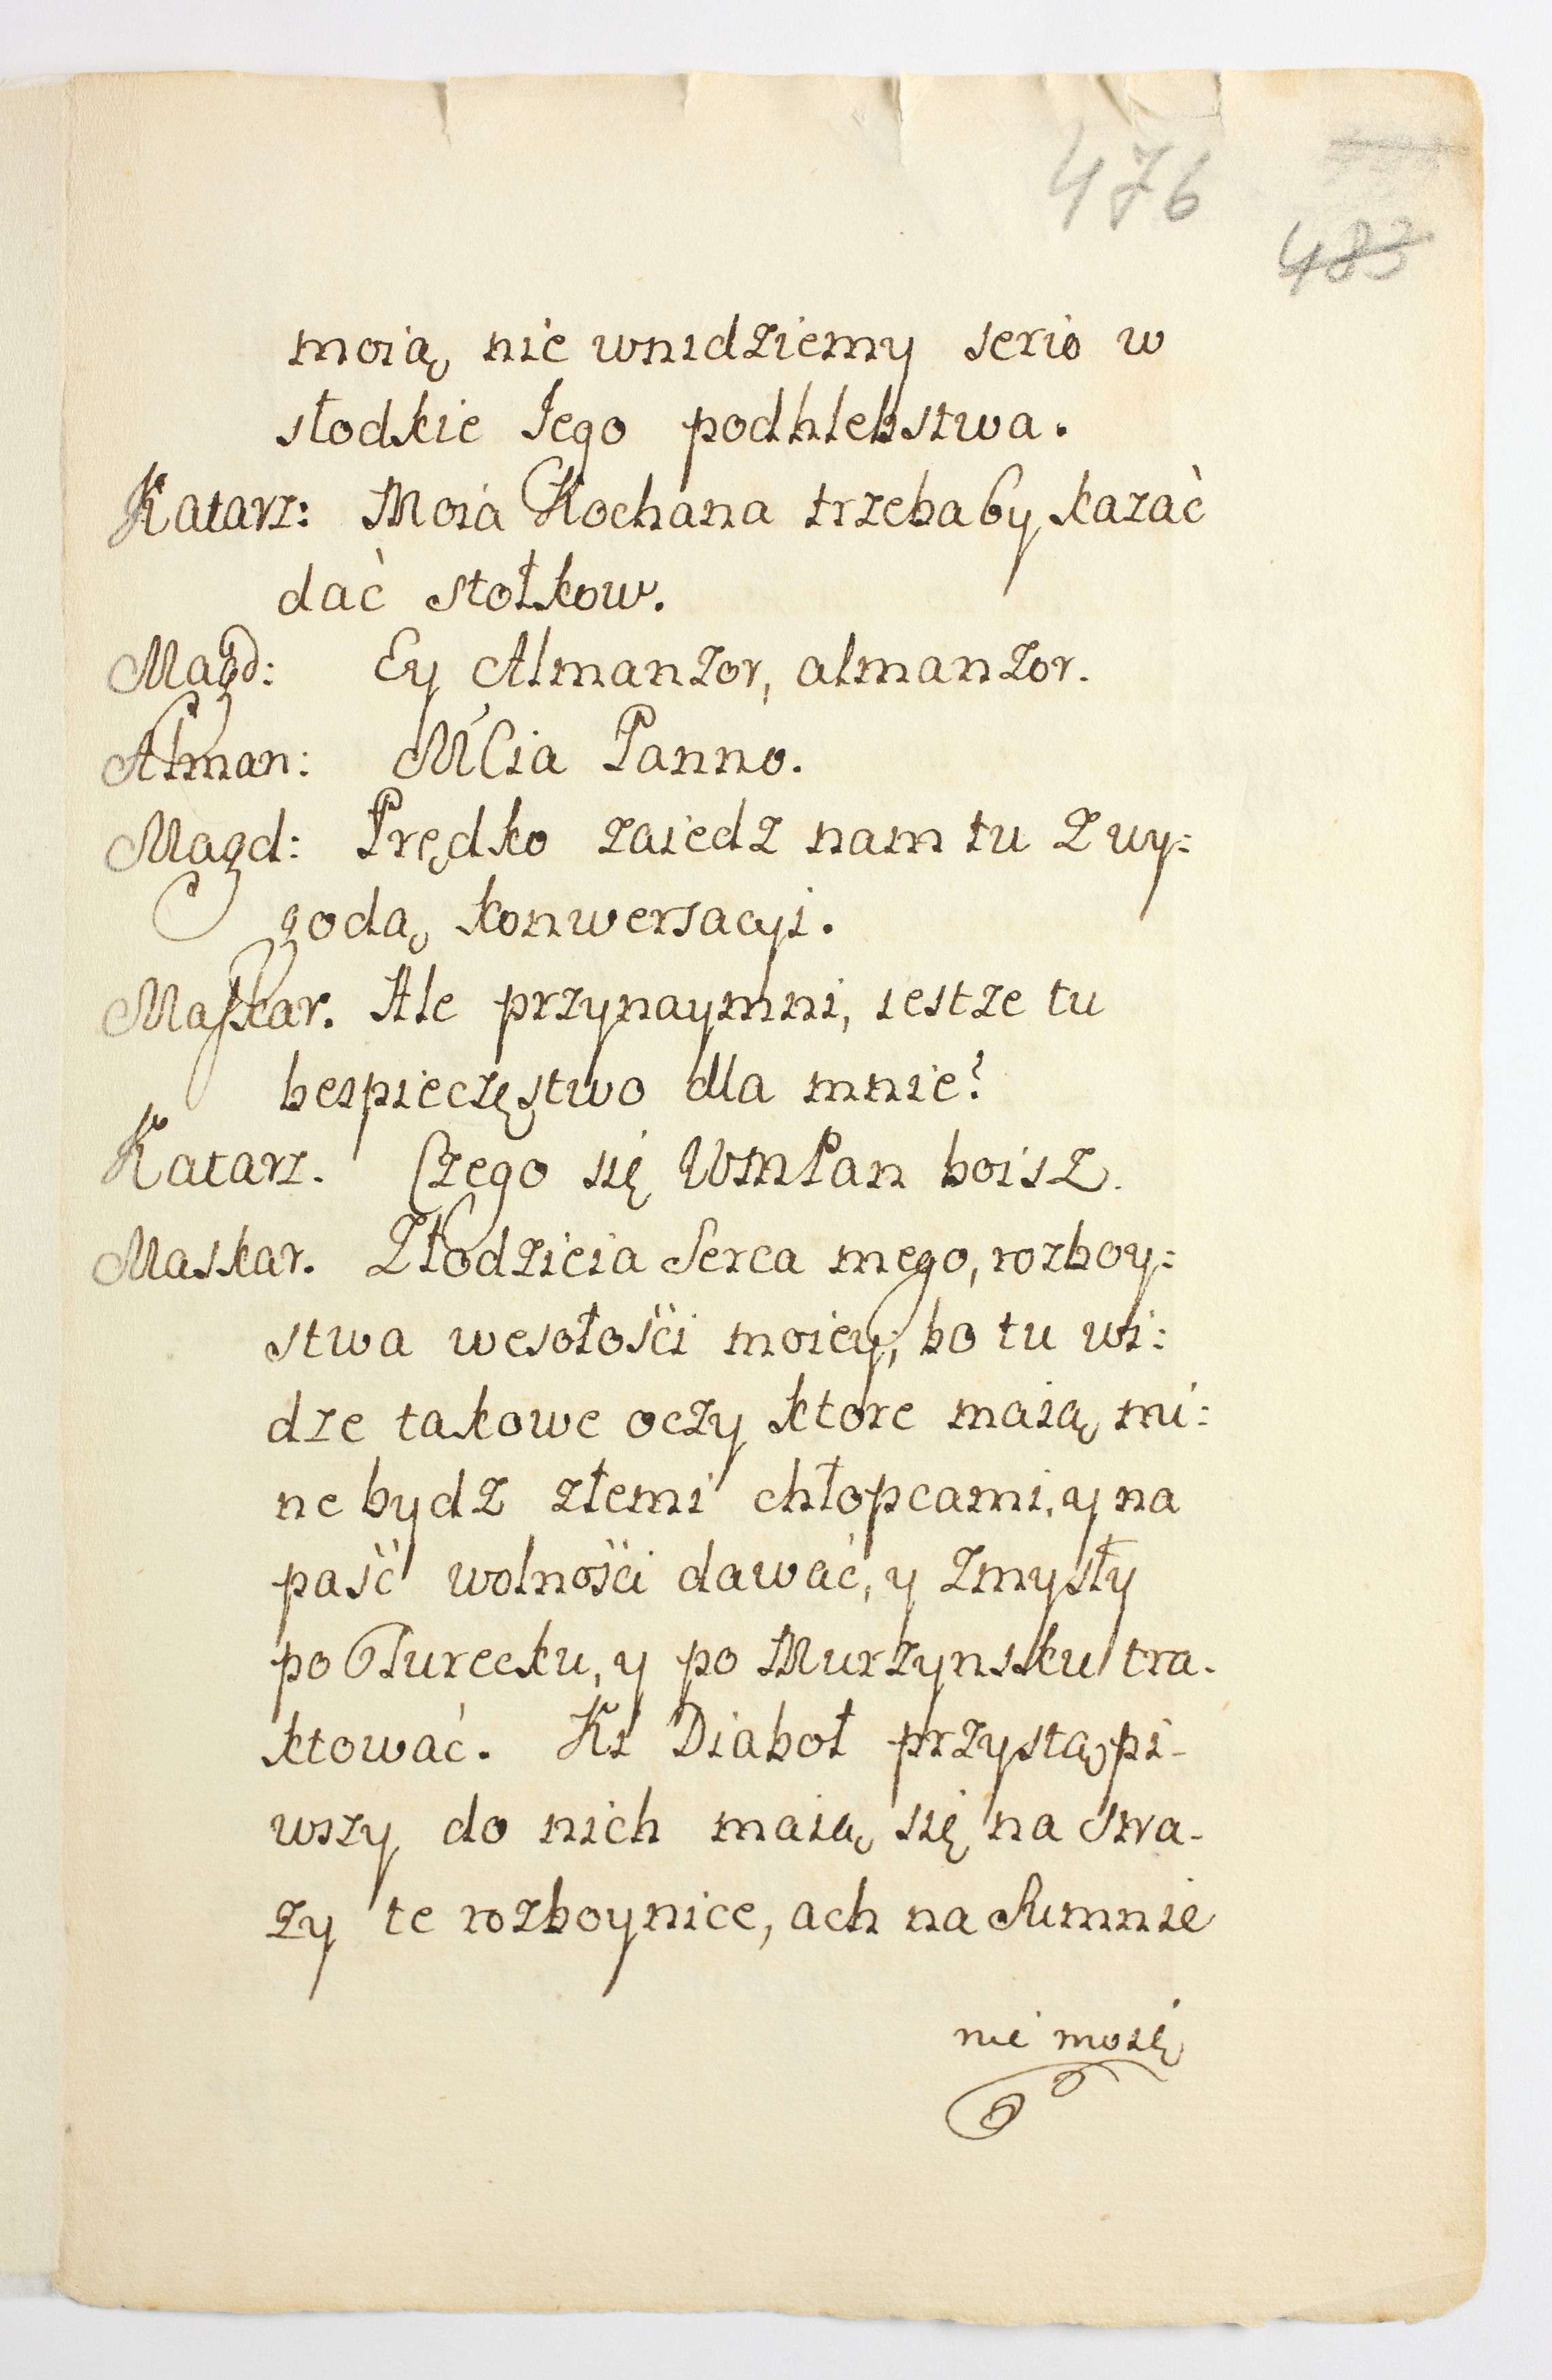 476
483
moią nie wnidziemy serio w
słodkie Jego podhlebstwa.
Katarz: Moia Kochana trzebaby kazać
dać stołkow.
Magd: Ey Almanzor, almanzor.
Alman: MCia Panno.
Magd: Prędko zaiedz nam tu z wy:
godą konwersacyi.
Maskar. Ale przynaymni, iestze tu
bespieczęstwo dla mnie?
Katarz. Czego się WMPan boisz.
Maskar. Złodzieia Serca mego, rozboy:
stwa wesołości moiey; bo tu wi:
dze takowe oczy ktore maią mi:
ne bydz złemi chłopcami, y na
paść wolności dawać, y zmysły
po Turecku, y po Murzynsku tra-
ktować. Ki Diaboł przystąpi-
wszy do nich maią się na stra-
zy te rozboynice, ach na Sumnie
nie moię